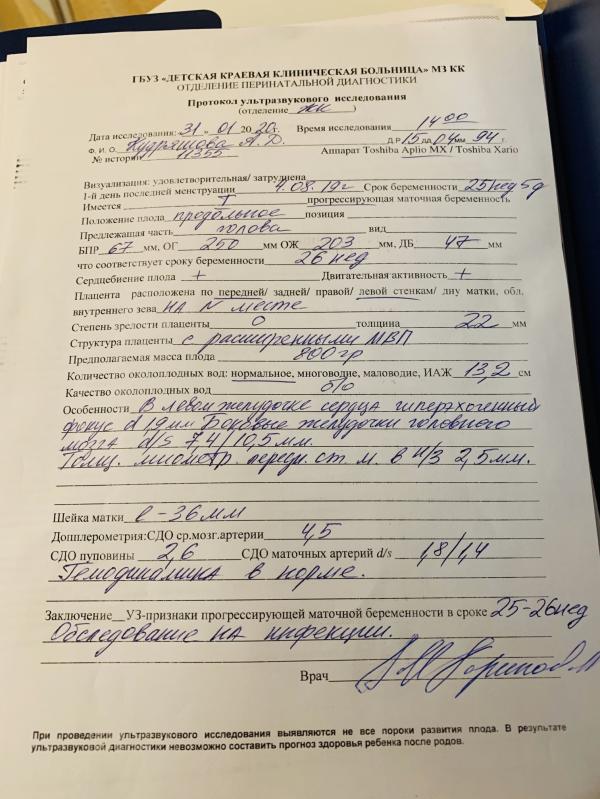 ГБУЗ «ДЕТСКАЯ КРАЕВАЯ КЛИНИЧЕСКАЯ БОЛЬНИЦА» МЗ КК
ОТДЕЛЕНИЕ ПЕРИНАТАЛЬНОЙ ДИАГНОСТИКИ
Протокол ультразвукового исследования
(отделение ЖК)
Дата исследования: «31» 01 2020г. Время исследования 14 00
Ф. И. О. Кудряшова А. Д. Д.Р 15 да 04 мм 94 г.
№ истории 11355 Аппарат Toshiba Aplio MX / Toshiba Xario
Визуализация: удовлетворительная/ затруднена
1-й день последней менструации 4.08.19г Срок беременности 25 нед 5д
Имеется I прогрессирующая маточная беременность
Положение плода продольное позиция
Предлежащая часть голова вид
БПР 67 мм, ОГ 250 мм ОЖ 203 мм, ДБ 47 мм
что соответствует сроку беременности 26 нед
Сердцебиение плода + Двигательная активность +
Плацента расположена по передней/ задней/ правой/ левой стенкам/ дну матки, обл.
внутреннего зева на N месте
Степень зрелости плаценты 0 толщина 22 мм
Структура плаценты с расширенными МВП
Предполагаемая масса плода 800 гр
Количество околоплодных вод: нормальное, многоводие, маловодие, ИАЖ 13,2 см
Качество околоплодных вод б/о
Особенности В левом желудочке сердца гиперэхогенный
фокус d 1,9 мм Боковые желудочки головного
мозга d/s 7,4/10,5мм.
Толщ. миометр. передн. ст. м. в н/3 2,5мм.
Шейка матки l - 36 мм
Допплерометрия:СДО ср.мозг.артерии 4,5
СДО пуповины 2,6 СДО маточных артерий d/s 1,8/1,4
Гемодинамика в норме.
Заключение__УЗ-признаки прогрессирующей маточной беременности в сроке 25-26 нед
Обследование на инфекции.
Врач
При проведении ультразвукового исследования выявляются не все пороки развития плода. В результате
ультразвуковой диагностики невозможно составить прогноз здоровья ребенка после родов.